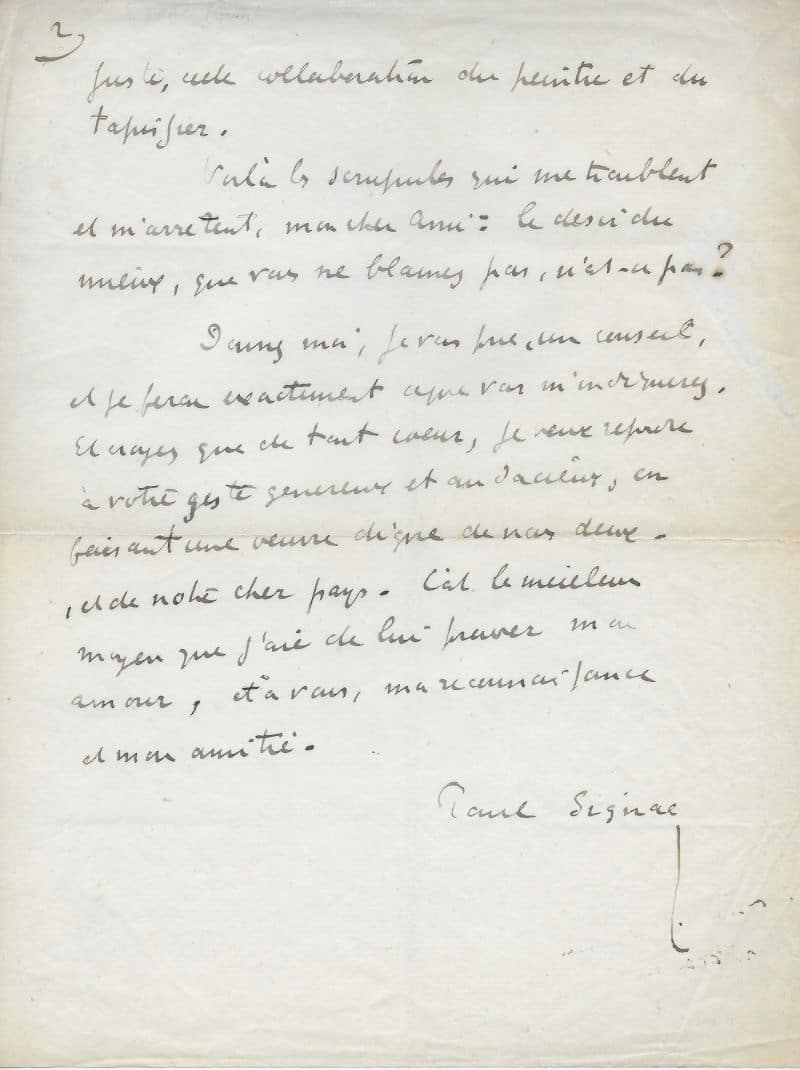 2)
juste, cette collaboration du peintre et du
tapissier.
Voilà les scrupules qui me troublent
et m'arretent, mon cher ami : le desir du
mieux, que vous ne blamez pas, n'est-ce pas ?
Donnez moi, je vous prie, un conseil,
et je ferai exactement ce que vous m'indiquerez.
Et croyez que de tout coeur, je veux repondre
à votre geste genereux et audacieux, en
faisant une oeuvre digne de nous deux -
, et de notre cher pays - C'est le meilleur
moyen que j'aie de lui prouver mon
amour, et à vous, ma reconnaissance
et mon amitié -
Paul Signac